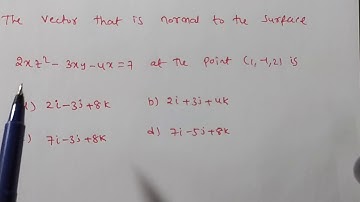 The vector that is normal to the surface
2xz² - 3xy - 4x = 7 at the point (1,-1,2) is
) 2i-3j+8k b) 2i+3j+4k
) 7i-3j+8k d) 7i-5j+8k